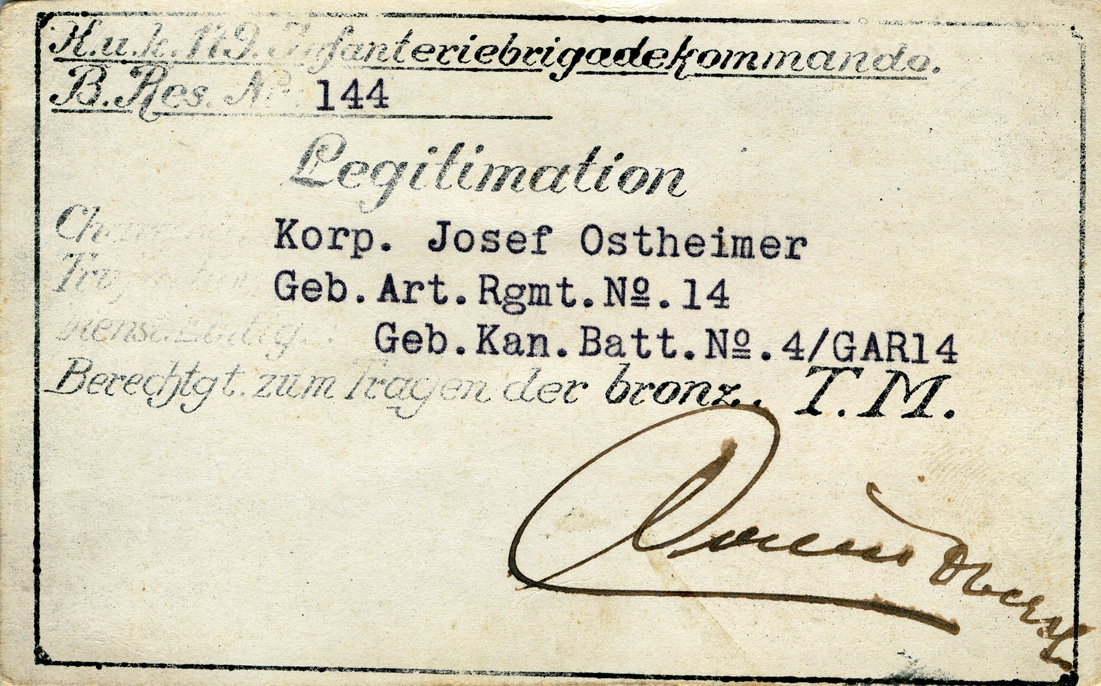 K.u.k. 179. Infanteriebrigadekommando.
B.Res. Nr. 144
Legitimation
Korp. Josef Ostheimer
Geb.Art.Rgmt.№.14
Geb.Kan.Batt.№.4/GAR14
Berechtgt. zum Tragen der bronz. T.M.
Oberst